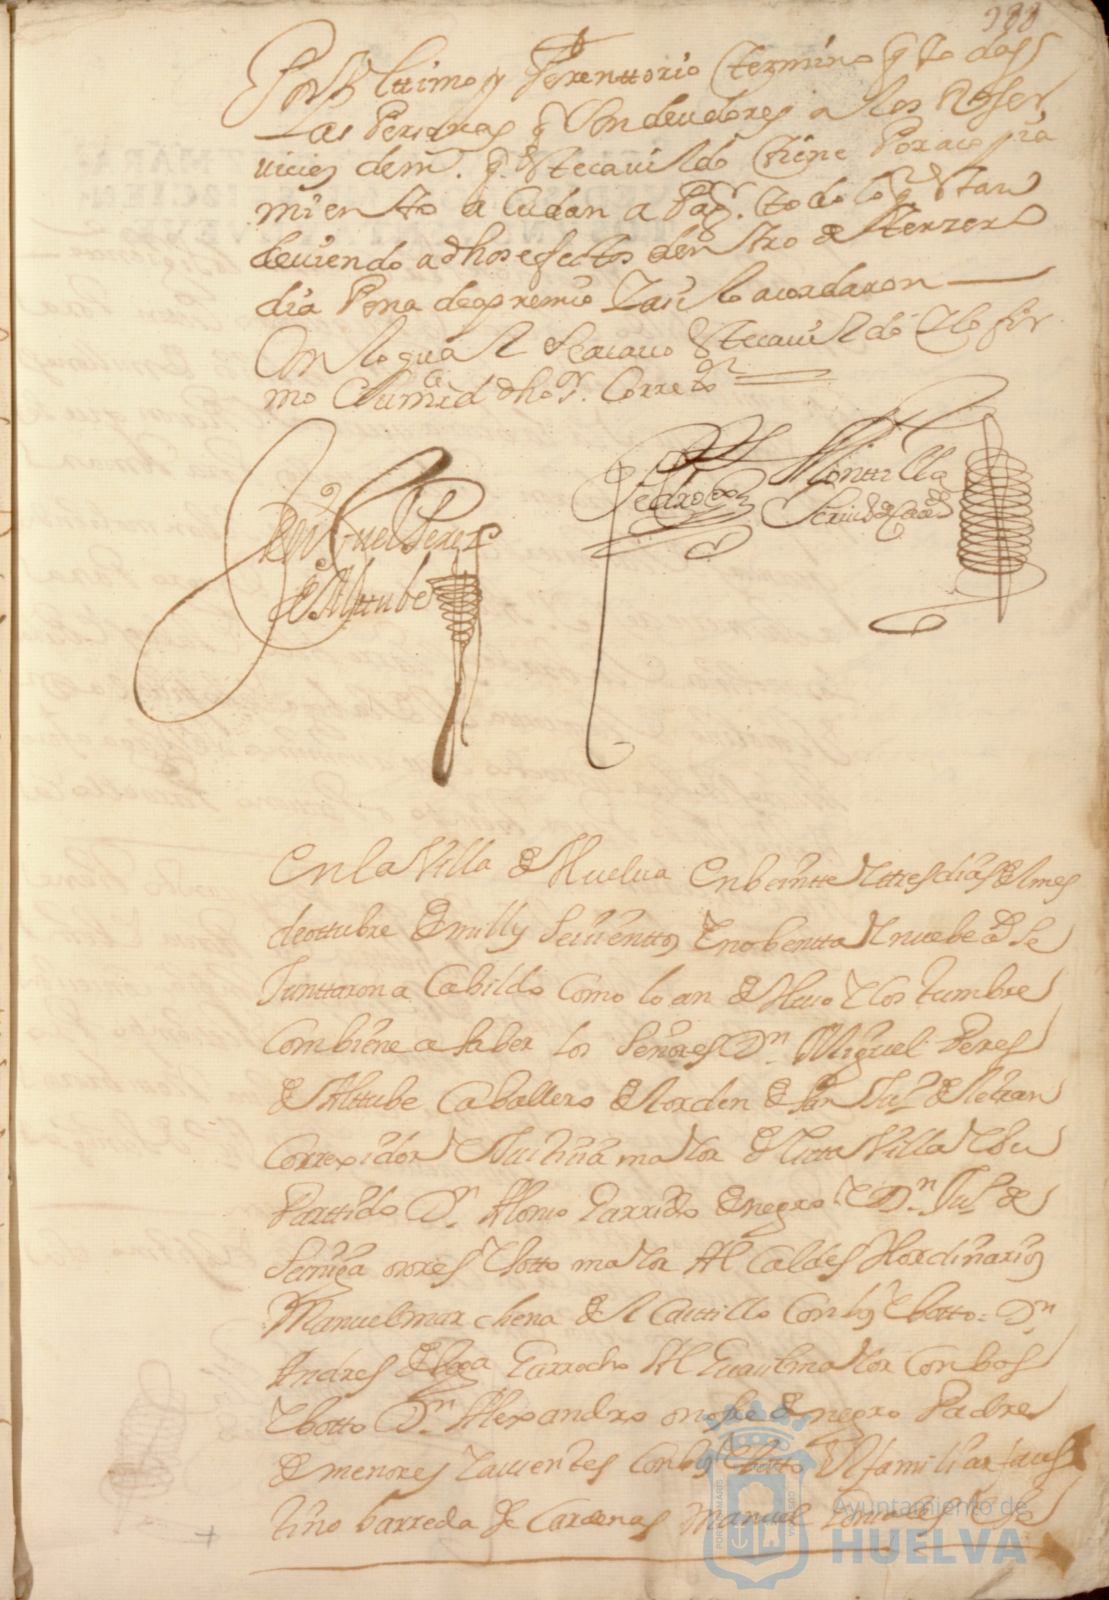 Por Ultimo y Perenttorio termino q todas
Las Personas q son deudores a los
vicios dem. q. Estecauildo tiene Por
miento acudan a Pagr. todo lo q. Estan
deuiendo a dhos efectos dentro de terzero
dia Pena de apremio Yasi lo acordaron
Con lo qual Se acauo Estecauildo Ylo fir
mo Su mrd dho Sr. Corregor
Dn Miguel Perez
de Alttube
Pedro Montilla
En la Villa de Huelua En beintte Yttres dias del mes
de ottubre de mill y Seiscienttos Y nobentta Y nuebe as Se
Junttaron a Cabildo Como lo an de Huso Y Costumbre
Combiene a saber los Señores Dn. Miguel Peres
de Alttube Caballero del orden de San Juo de letran
Correxidor Y Justicia maior de estta Villa Y Su
Parttido Dn. Alonso Garrido de negro Y Dn. Juo de
Al Caldes Hordinarios
Manuel marchena del Castillo Con bos Y botto Dn
Andres de bega Garrocho Al Guasil maior Con bos
Y botto Dn. Alexandro de negro Padre
de menores Y ausentes Con bos Y botto El familiar faus
tino barreda de Cardenas Manuel Gonsales
388
Ayuntamiento de
HUELVA